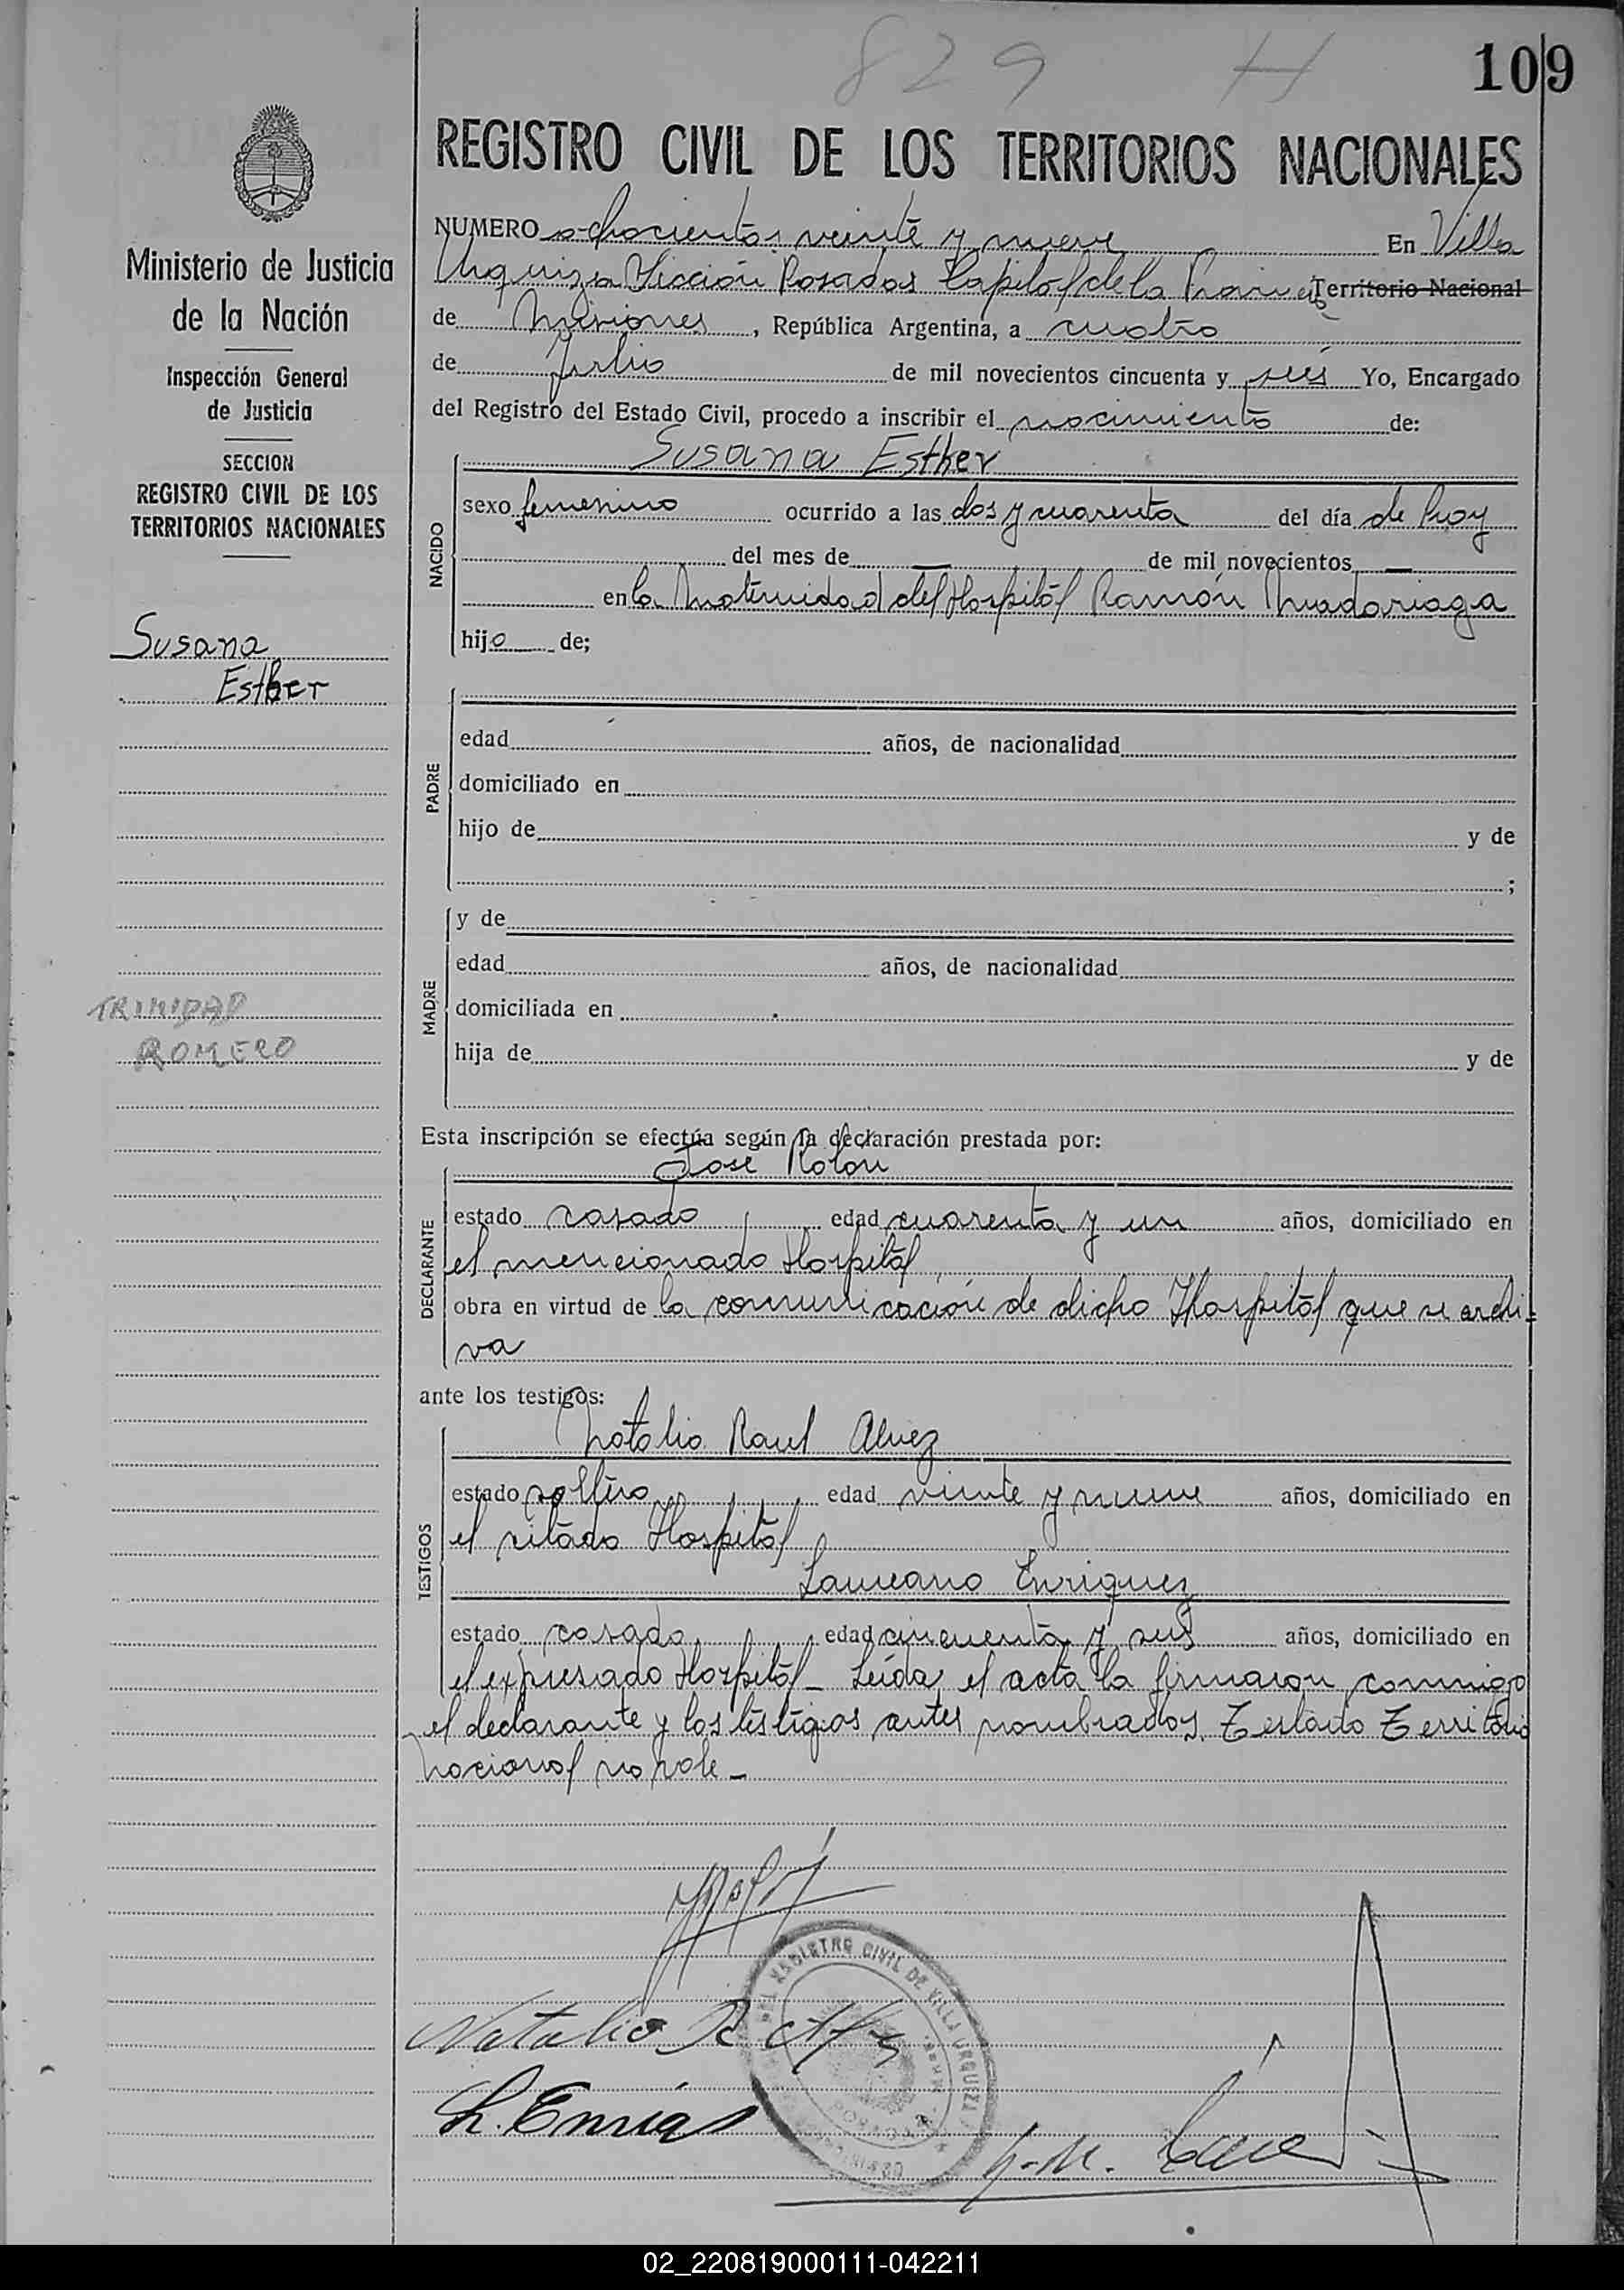 829 H
109
REGISTRO CIVIL DE LOS TERRITORIOS NACIONALES
Ministerio de Justicia
de la Nación
Inspección General
de Justicia
SECCION
REGISTRO CIVIL DE LOS
TERRITORIOS NACIONALES
Susana
Esther
TRINIDAD
ROMERO
NUMERO ochocientos veinte y nueve En Villa
Urquiza Sección Posadas Capital de la Provincia Territorio Nacional
de Misiones, República Argentina, a cuatro
de Julio de mil novecientos cincuenta y seis Yo, Encargado
del Registro del Estado Civil, procedo a inscribir el nacimiento de:
Susana Esther
NACIDO
sexo femenino ocurrido a las dos y cuarenta del día de hoy
del mes de — de mil novecientos —
en la Maternidad del Hospital Ramón Madariaga
hijo de;
PADRE
edad años, de nacionalidad
domiciliado en
hijo de y de
;
MADRE
y de
edad años, de nacionalidad
domiciliada en
hija de y de
Esta inscripción se efectúa según la declaración prestada por:
Jose Rolon
DECLARANTE
estado casado, edad cuarenta y un años, domiciliado en
el mencionado Hospital,
obra en virtud de la comunicación de dicho Hospital que se archi-
va
ante los testigos:
Natalio Raul Alvez
TESTIGOS
estado soltero, edad veinte y nueve años, domiciliado en
el citado Hospital
Laureano Enriquez
estado casado, edad cincuenta y seis años, domiciliado en
el expresado Hospital_ Leida el acta la firmaron conmigo
el declarante y los testigos antes nombrados. Testado Territorio
Nacional no vale_
Natalio R
L. Enriq
REGISTRO CIVIL DE VILLA URQUIZA
POSADAS
02_220819000111-042211